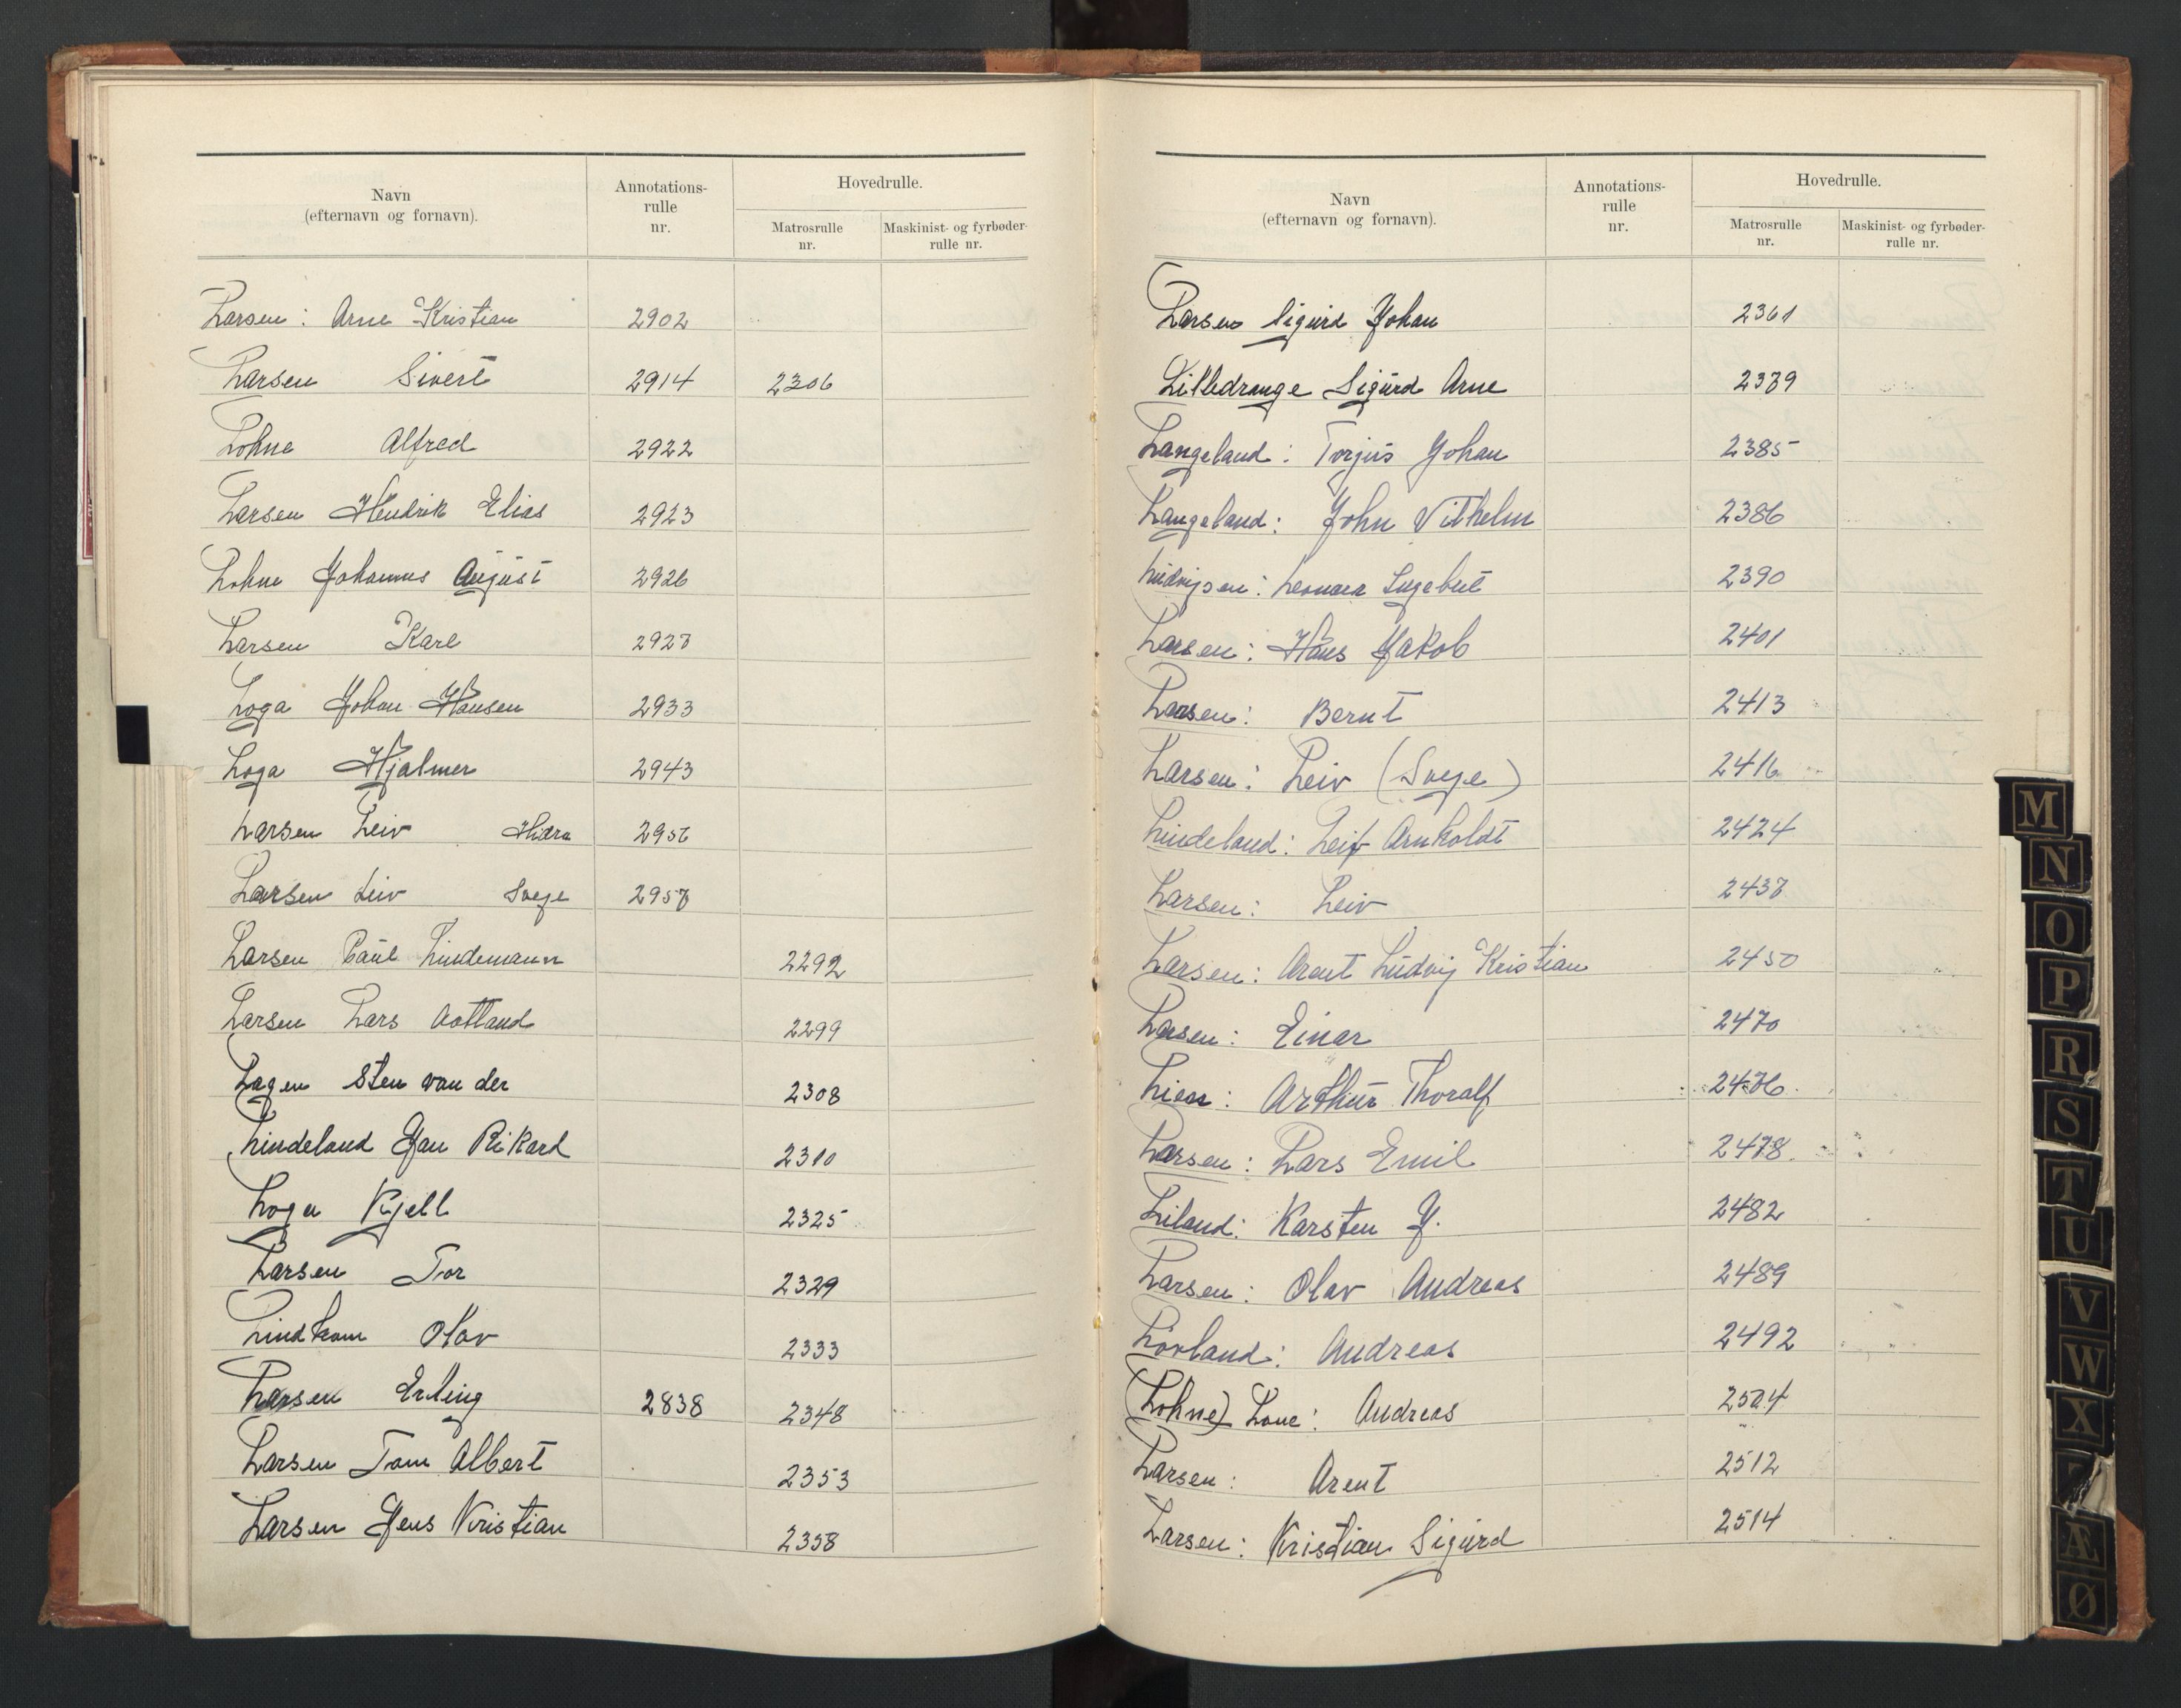 Navn
(efternavn og fornavn).
Annotations-
rulle
nr.
Hovedrulle.
Matrosrulle
nr.
Maskinist- og fyrbøder-
rulle nr.
Larsen: Arne Kristian 2902
Larsen Sivert 2914 2306
Lohne Alfred 2922
Larsen Hendrik Elias 2923
Lohne Johannes August 2926
Larsen Karl 2927
Loga Johan Hansen 2933
Loga Hjalmer 2943
Larsen Leiv Hidra 2956
Larsen Leiv Svege 2957
Larsen Paul Lindemann 2292
Larsen Lars Aotland 2299
Lagen Sten van der 2308
Lindeland Jan Rikard 2310
Loga Kjell 2325
Larsen Tor 2329
Lindkom Olav 2333
Larsen Erling 2838 2348
Larsen Tom Albert 2353
Larsen Jens Kristian 2358
Navn
(efternavn og fornavn).
Annotations-
rulle
nr.
Hovedrulle.
Matrosrulle
nr.
Maskinist- og fyrbøder-
rulle nr.
Larsen Sigurd Johan 2361
Lilledrange Sigurd Arne 2379
Langeland: Torjus Johan 2385
Langeland: John Vilhelm 2386
Ludvigsen: Leonard Ingebret 2390
Larsen: Hans Jakob 2401
Larsen: Bernt 2413
Larsen: Leiv (Svege) 2416
Lindeland: Leif Arnholdt 2424
Larsen: Leiv 2437
Larsen: Arent Ludvig Kristian 2450
Larsen: Einar 2470
Lien: Arthur Thoralf 2476
Larsen: Lars Emil 2478
Liland: Karsten J. 2482
Larsen: Olav Andreas 2489
Lovland: Andreas 2492
(Lohne) Lone: Andreas 2504
Larsen: Arent 2512
Larsen: Kristian Sigurd 2514
M
N
O
P
R
S
T
U
V
W
X
Æ
Ø